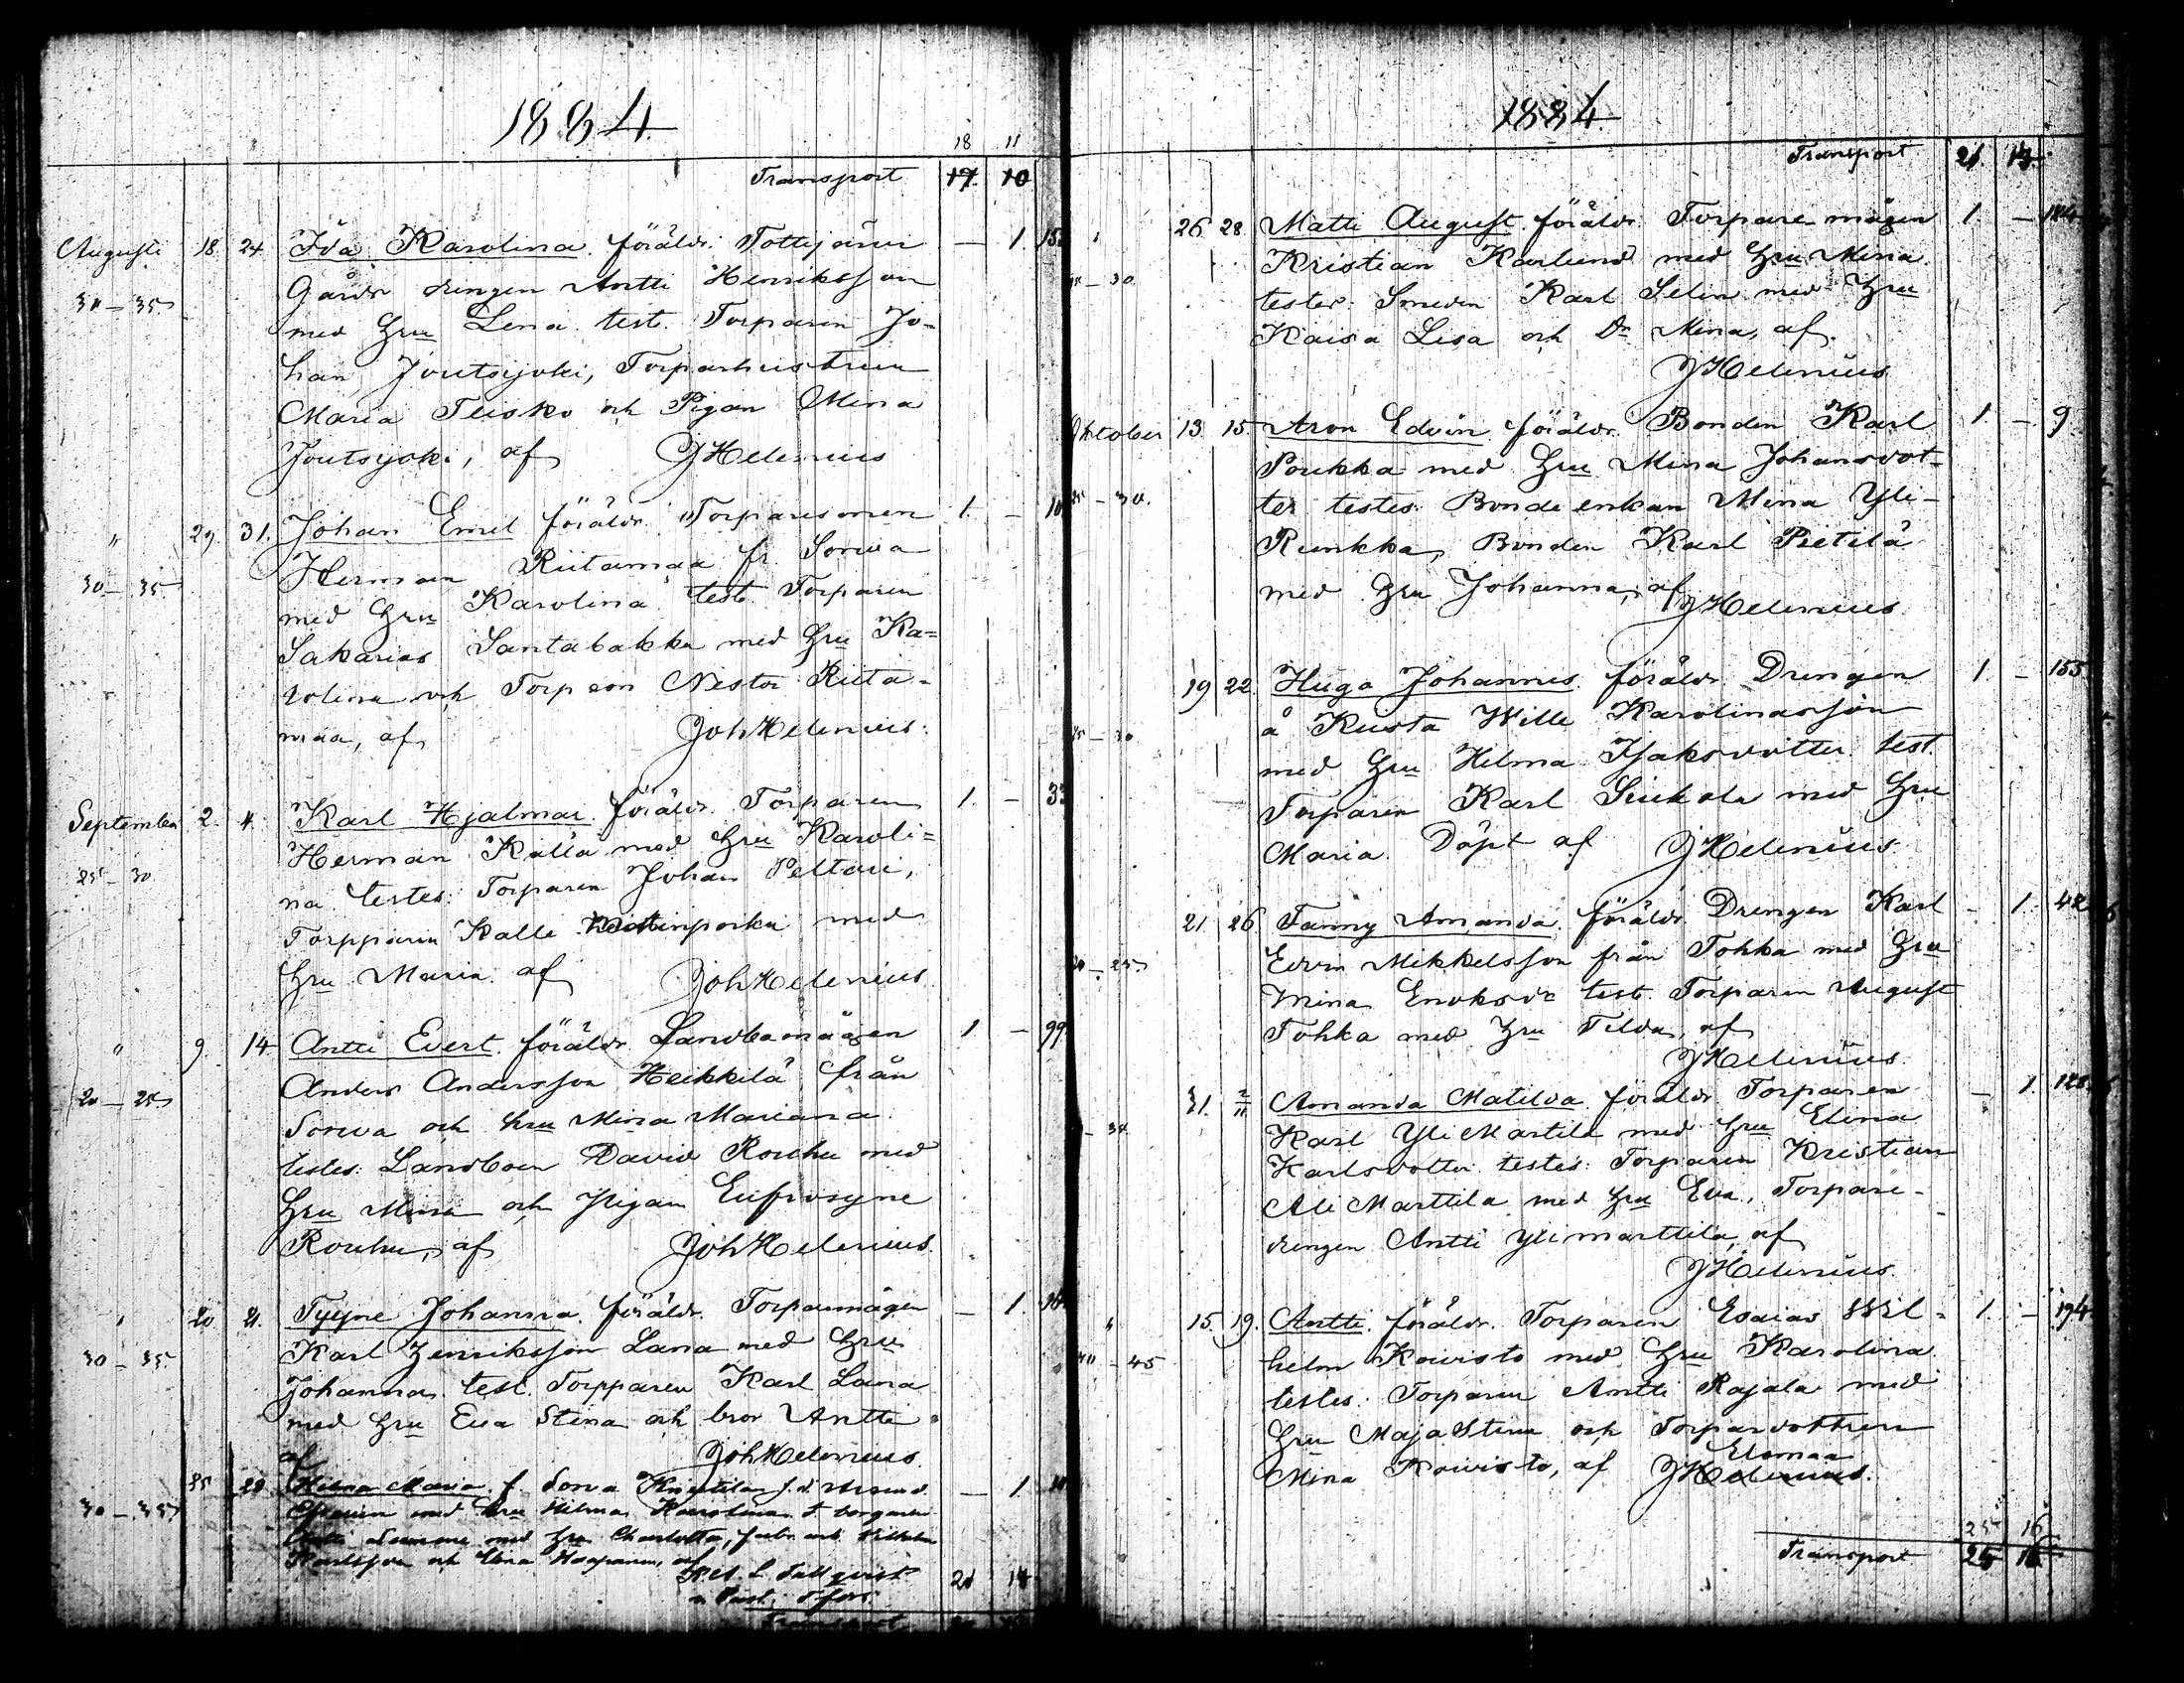 1884.
18 11
Transport 17. 10
Augusti 18. 24 Ida Karolina. föräldr. Tottijärvi — 1 15
30–35 Gårds drengen Antti Henriksson
med Hru Lena. test. Torparen Jo-
han Joutsijoki, Torparhustrun
Maria Teisko och Pigan Mina
Joutsijoki, af JHelenius
" 29. 31. Johan Emil föräldr. Torparesonen 1. — 10
30–35 Herman Riitamaa fr. Sorva
med Hru Karolina test. Torparen
Sakarias Santabakka med Hru Ka-
rolina och Torp son Nestor Riita-
maa, af JohHelenius.
September 2. 4. Karl Hjalmar. föräldr. Torparen 1. — 33
25–30 Herman Kallä med Hru Karoli-
na. testes: Torparen Johan Peltari,
Torpparen Kalle med
Hru Maria. af JohHelenius.
" 9. 14 Antti Evert. föräldr. Landbomågen 1 — 99
20–25 Anders Andersson Heikkilä från
Sorva och hru Mina Mariana.
testes: Landboen David Rouhu med
Hru Mina och Pigan Eufrosyne
Rouhu, af JohHelenius.
" 20 21. Tyyne Johanna. föräldr. Torparemågen — 1.
30–35 Karl Henriksson Lana med Hru
Johanna. test. Torpparen Karl Lana
med Hru Eva Stina och bror Antti
af JohHelenius.
25 28 Hilma Maria f. Sorva — 1
30–35 med Hru Hilma Karolina t.
med Hru Charlotta, Vilhelm
Karlsson och af
21 14
Transport
1884.
Transport 21. 13.
" 26 28 Matti August. föräldr. Torpare mågen 1. — 184
–30 Kristian Karlund med Hru Mina.
testes: Smeden Karl Selin med Hru
Kaisa Lisa och Dr Mina, af
JHelenius
Oktober 13 15. Aron Edvin. föräldr. Bonden Karl 1. — 9.
25–30. Poukka med Hru Mina Johansdot-
ter testes. Bonde enkan Mina Yli-
Runkka, Bonden Karl Pietilä
med Hru Johanna, af JHelenius
19 22. Hugo Johannes. föräldr. Drengen 1. — 155
25–30 å Kusta Wille Karolinasson
med Hru Hilma Isaksdotter. test.
Torparen Karl Siukola med Hru
Maria. Döpt af JHelenius.
21. 26. Fanny Amanda. föräldr. Drengen Karl — 1. 42
20–25 Edvin Mikkelsson från Tohka med Hru
Mina Enoksdr test. Torparen August
Tohka med Hru Tilda, af
JHelenius.
31. 2/11 Amanda Matilda. föräldr. Torparen — 1. 128
–30 Karl YliMartila med hru Elina
Karlsdotter. testes: Torparen Kristian
AliMarttila med Hru Eva, Torpare-
drengen Antti Ylimarttila, af
JHelenius.
" 15. 19. Antti. föräldr. Torparen Esaias Wil- 1. — 194
40–45 helm Koivisto med Hru Karolina.
testes: Torparen Antti Rajala med
Hru Maja Stina och Torpardottren
Mina Koivisto, af JHelenius.
Elomaa
25 16
Transport 25 16